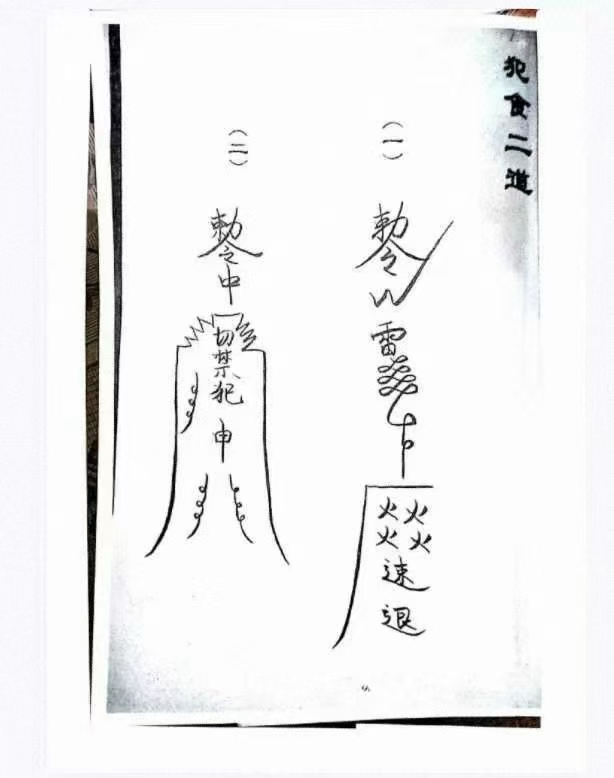 犯食二道
（一）
勅令
雷
火火
火火
速
退
（二）
勅令
中
切禁犯
申